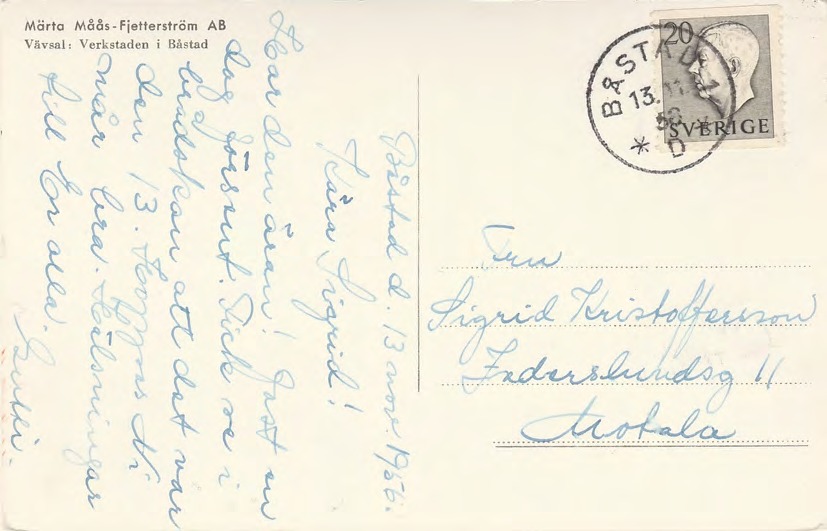 Märta Måås-Fjetterström AB
Vävsal: Verkstaden i Båstad
Båstad d. 13 nov. 1956.
Kära Sigrid!
Har den äran! Fast en
dag försent. Fick se i
att det var
den 13. Hoppas Ni
mår bra. Hälsningar
till Er alla.
20
SVERIGE
BÅSTAD 1
13.11.
56
* D
Fru
Sigrid Kristofferson
11
Motala